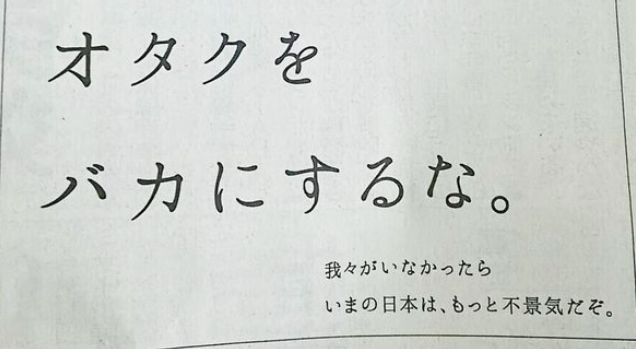 オタクを
バカにするな。
我々がいなかったら
いまの日本は、もっと不景気だぞ。